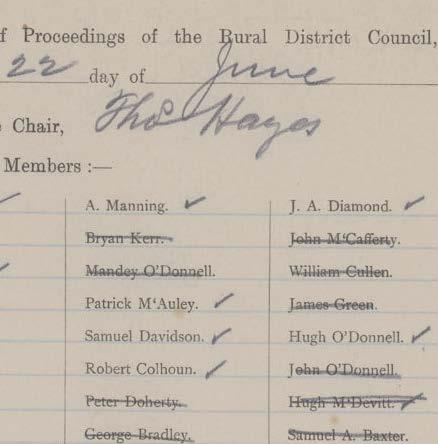 f Proceedings of the Rural District Council,
22 day of June
e Chair, Thos Hayes
Members :—
A. Manning. ✓ J. A. Diamond. ✓
Bryan Kerr. John M‘Cafferty.
Mandey O'Donnell. William Cullen.
Patrick M‘Auley. ✓ James Green.
Samuel Davidson. ✓ Hugh O'Donnell. ✓
Robert Colhoun. ✓ John O'Donnell.
Peter Doherty. Hugh M‘Devitt. ✓
George Bradley. Samuel A. Baxter.